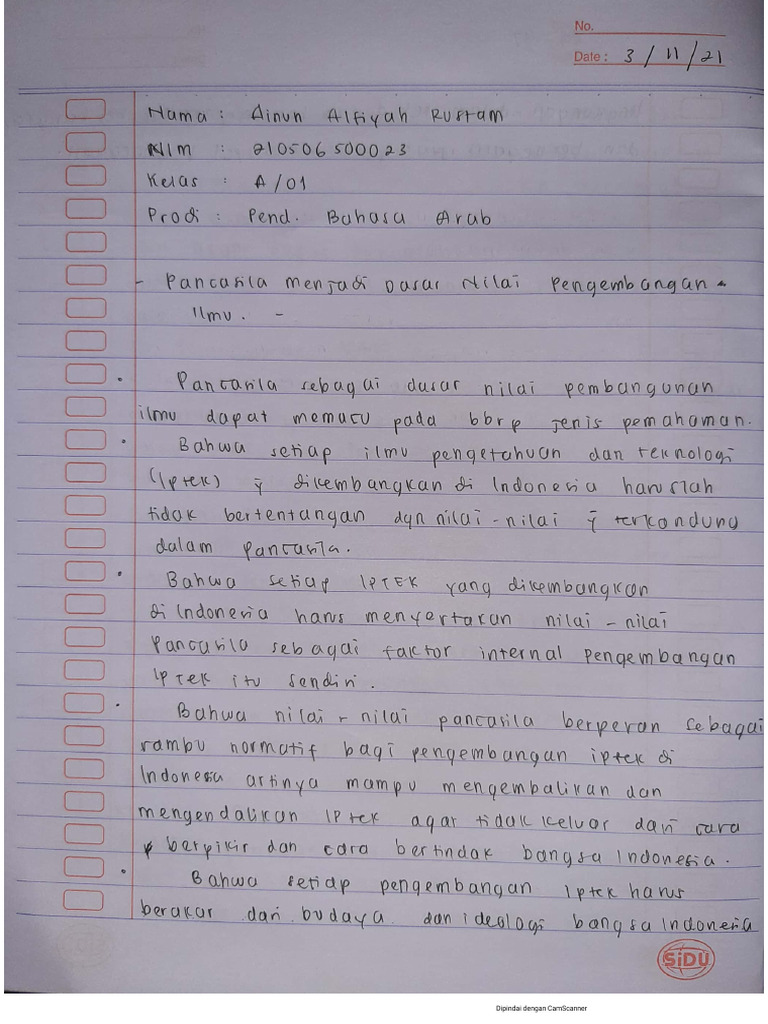 No.
Date : 3 / 11 / 21
Nama : Ainun Alfiyah Rustam
NIM : 210506500023
Kelas : A/01
Prodi : Pend. Bahasa Arab
- Pancasila menjadi Dasar Nilai Pengembangan
Ilmu. -
Pancasila sebagai dasar nilai pembangunan
ilmu dapat memacu pada bbrp jenis pemahaman.
Bahwa setiap ilmu pengetahuan dan teknologi
(Iptek) ÿ dikembangkan di Indonesia haruslah
tidak bertentangan dgn nilai-nilai ÿ terkandung
dalam Pancasila.
Bahwa setiap IPTEK yang dikembangkan
di Indonesia harus menyertakan nilai-nilai
Pancasila sebagai faktor internal pengembangan
Iptek itu sendiri.
Bahwa nilai-nilai pancasila berperan sebagai
rambu normatif bagi pengembangan iptek di
Indonesia artinya mampu mengembalikan dan
mengendalikan IPTEK agar tidak keluar dari cara
berpikir dan cara bertindak bangsa Indonesia.
Bahwa setiap pengembangan Iptek harus
berakar dari budaya dan ideologi bangsa Indonesia
SiDU
Dipindai dengan CamScanner